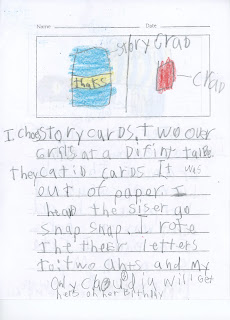 Name: Date:
story Crad
thaks
Crad
I choo Story cards. Two over
Grils at a Difint table.
They cat id cards It was
out of paper. I
heap the siser go
snap snap. I rote
The theer letters
to: two ants and my
only
will get
hers on her Birthday